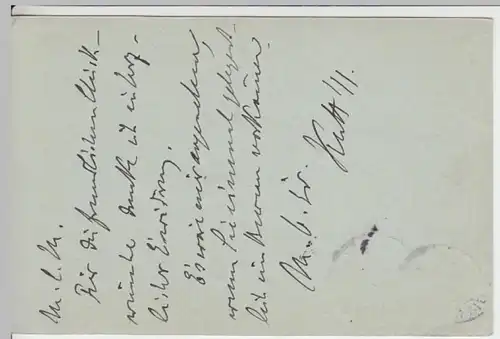 M. l. M.
Für die freundlichen Glück-
wünsche danke ich in herz-
licher Erwiderung.
Es wäre mir angenehm,
wenn Sie einmal gelegent-
lich im Bureau vorkämen.
M. b. Gr.